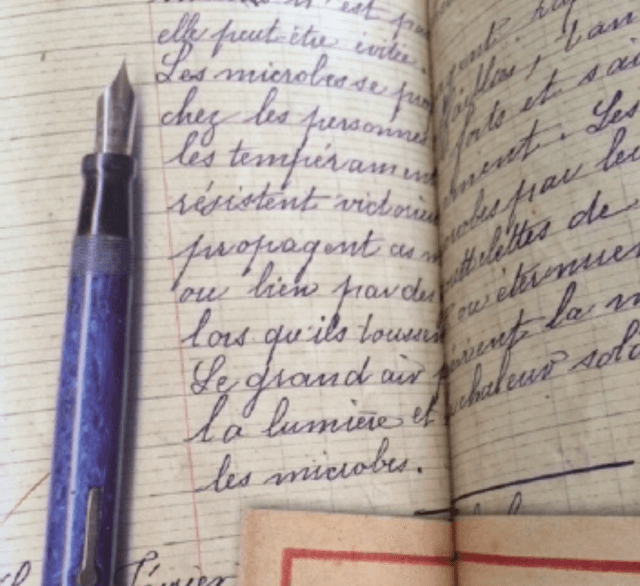 n'est pas
elle peut-être évitée.
Les microbes se pro
chez les personnes
les tempérament
résistent victorieu
propagent ces m
ou bien par des
lors qu'ils toussen
Le grand air
la lumière et
les microbes.
forts et sai
ment. Les
robes par leu
ttelettes de
ou éternuen
la m
chaleur sola
février